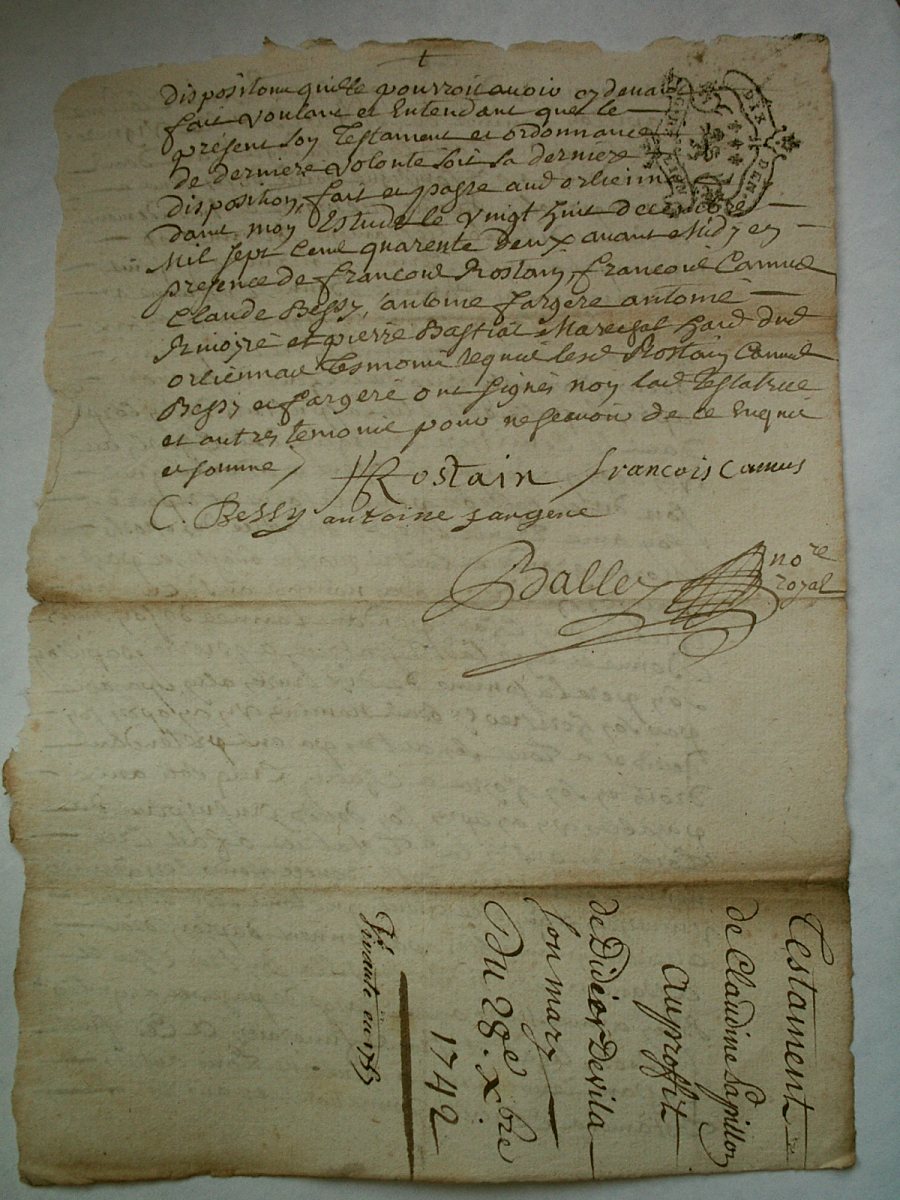 dispositions quelle pourroit avoir cy devant
fait voulant et Entendant que le
présent son Testament et ordonnance
de derniere volonté soit sa derniere
disposition, fait et passé aud orliennas
dans mon Estude le vingt huit decembre
Mil sept cens quarente deux avant Midy en
presence de francois Rostain, francois Camus
Claude Bessy, antoine fargere antoine
et pierre Bastiat Marechal dud
orliennas tesmoins lesd Rostain Camus
Bessy et fargere ont signés non lad Testatrice
et autres temoins pour ne scavoir de ce Enquis
et sommé
Rostain francois Camus
C. Bessy antoine fargere
Balley nore royal
Testament
de Claudine Papillon
au proffit
de Didier Devila
son mary
Du 28e Xbre
1742
Vivante en
DIX DEN.